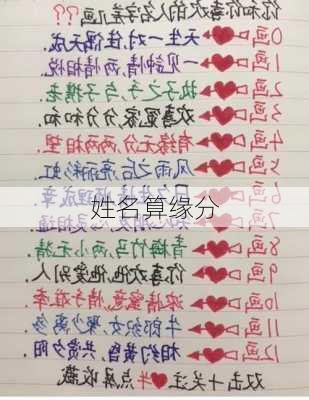 你和你喜欢的人名字差几画??
0画 天生一对,佳偶天成.
1画 一见钟情,两情相悦.
2画 执子之手,与子携老.
3画 欢喜冤家,分分和和.
4画 有缘无分,两两相望.
5画 风雨之后,亮丽彩虹.
6画 理成章.
姓名算缘分
8画 青梅竹马,两小无猜
9画 你喜欢他,他爱别人
10画 浓情蜜意,
11画 牛郎织女,聚少离多
12画 相约黄昏,共赏夕阳.
双击+关注 点屏收藏